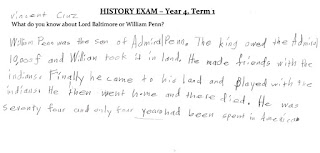 Vincent Cruz
HISTORY EXAM – Year 4, Term 1
What do you know about Lord Baltimore or William Penn?
William Penn was the son of Admiral Penn. The king owed the Admiral
10,000£ and William took it in land. He made friends with the
indians. Finally he came to his land and played with the
indians. He then went home and there died. He was
seventy four and only four years had been spent in America